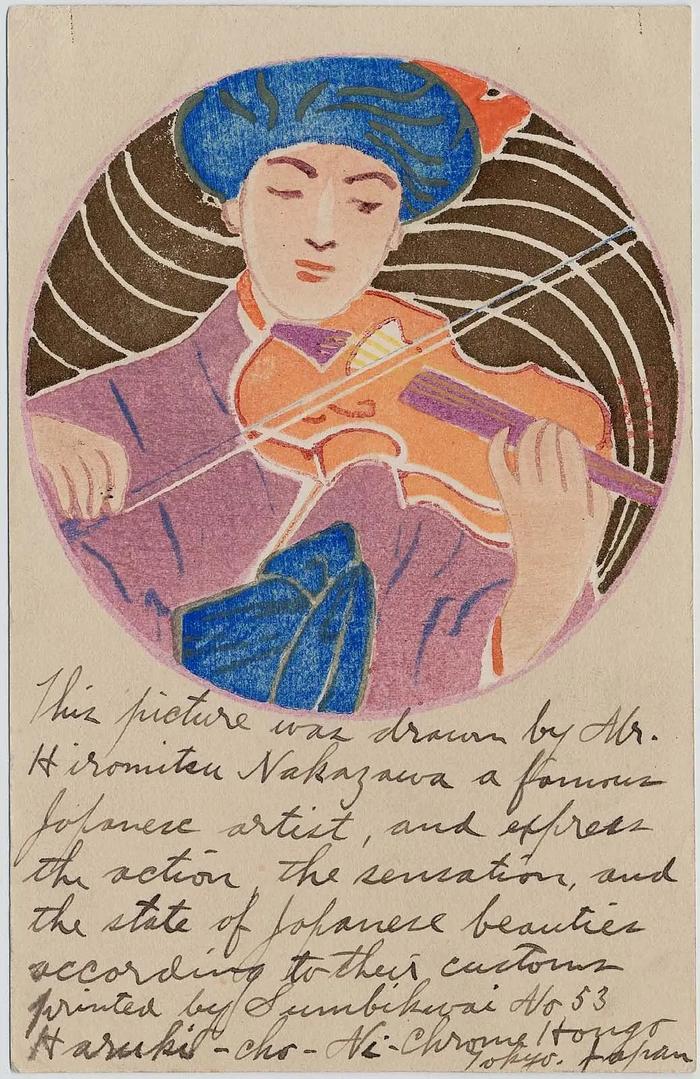 This picture was drawn by Mr.
Hiromitsu Nakazawa a famous
Japanese artist, and express
the action, the sensation, and
the state of Japanese beauties
according to their customs
printed by Sumbikwai No 53
Haruki-cho-Ni-Chrome Hongo
Tokyo. Japan